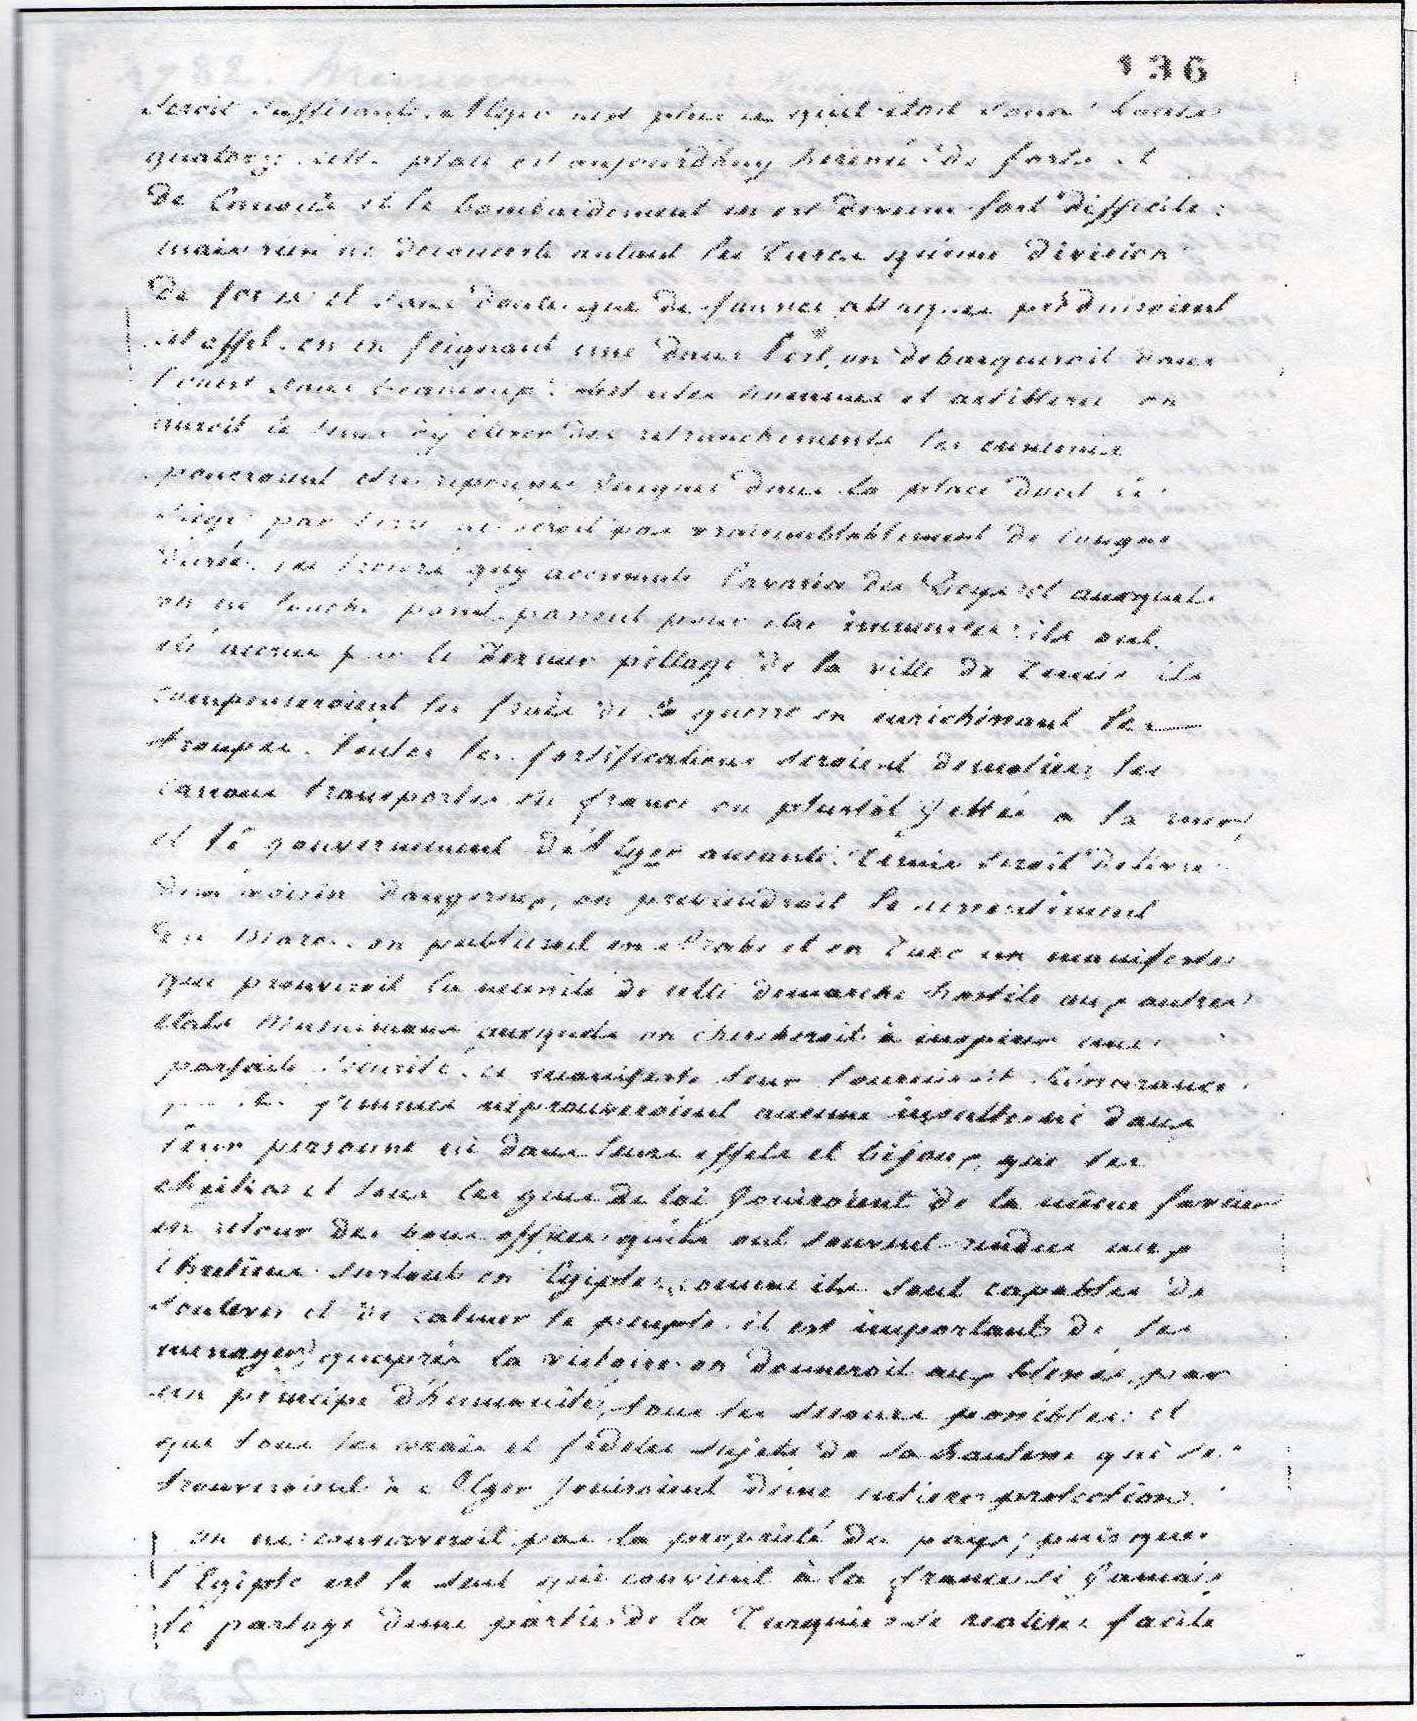 136
seroit suffisante. Alger n'est plus ce qu'il étoit sous Louis
quatorze cette place est aujourd'huy herissée de forts et
de Canons et le bombardement en est devenu fort difficile :
mais rien ne deconcerte autant les turcs qu'une division
de forces et sans doute que de fausses attaques produiroient
cet effet. en en feignant une dans l'est, on debarqueroit dans
l'ouest sans beaucoup d'obstacles hommes et artillerie on
auroit le tems d'y élever des retranchements les ennemis
pourroient etre repoussés jusques dans la place dont le
siège par terre ne seroit pas vraisemblablement de longue
durée. les trésors qu'y accumule l'avarice des Deys et auxquels
on ne touche point passent pour etre immenses : ils ont
été accrus par le dernier pillage de la ville de Tunis ils
compenseroient les frais de la guerre en enrichissant les
troupes. toutes les fortifications seroient demolies, les
canons transportés en france ou plustôt jettés a la mer,
et le gouvernement d'Alger aneanti. Tunis seroit delivré
d'un voisin dangereux, on previendroit le ressentiment
de Maroc. on publieroit en Arabe et en Turc un manifeste
qui prouveroit la necessité de cette demarche hostile aux autres
etats Musulmans auxquels on chercheroit à inspirer une
parfaite sécurité. ce manifeste leur donneroit l'assurance
que les femmes n'éprouveroient aucune insulte ni dans
leur personne ni dans leurs effets et bijoux, que les
cheiks et tous les gens de loi jouiroient de la même faveur
en retour des bons offices qu'ils ont souvent rendus aux
Chretiens surtout en Egipte, comme ils sont capables de
soulever et de calmer le peuple il est important de les
menager, qu'après la victoire on donneroit aux blessés, par
un principe d'humanité, tous les secours possibles et
que tous les vrais et fideles sujets de sa hautesse qui se
trouveroient à Alger jouiroient d'une entiere protection.
on ne conserveroit pas la propriété du pays ; puisque
l'Egipte est le seul qui convient à la france si jamais
le partage d'une partie de la Turquie se realise facile